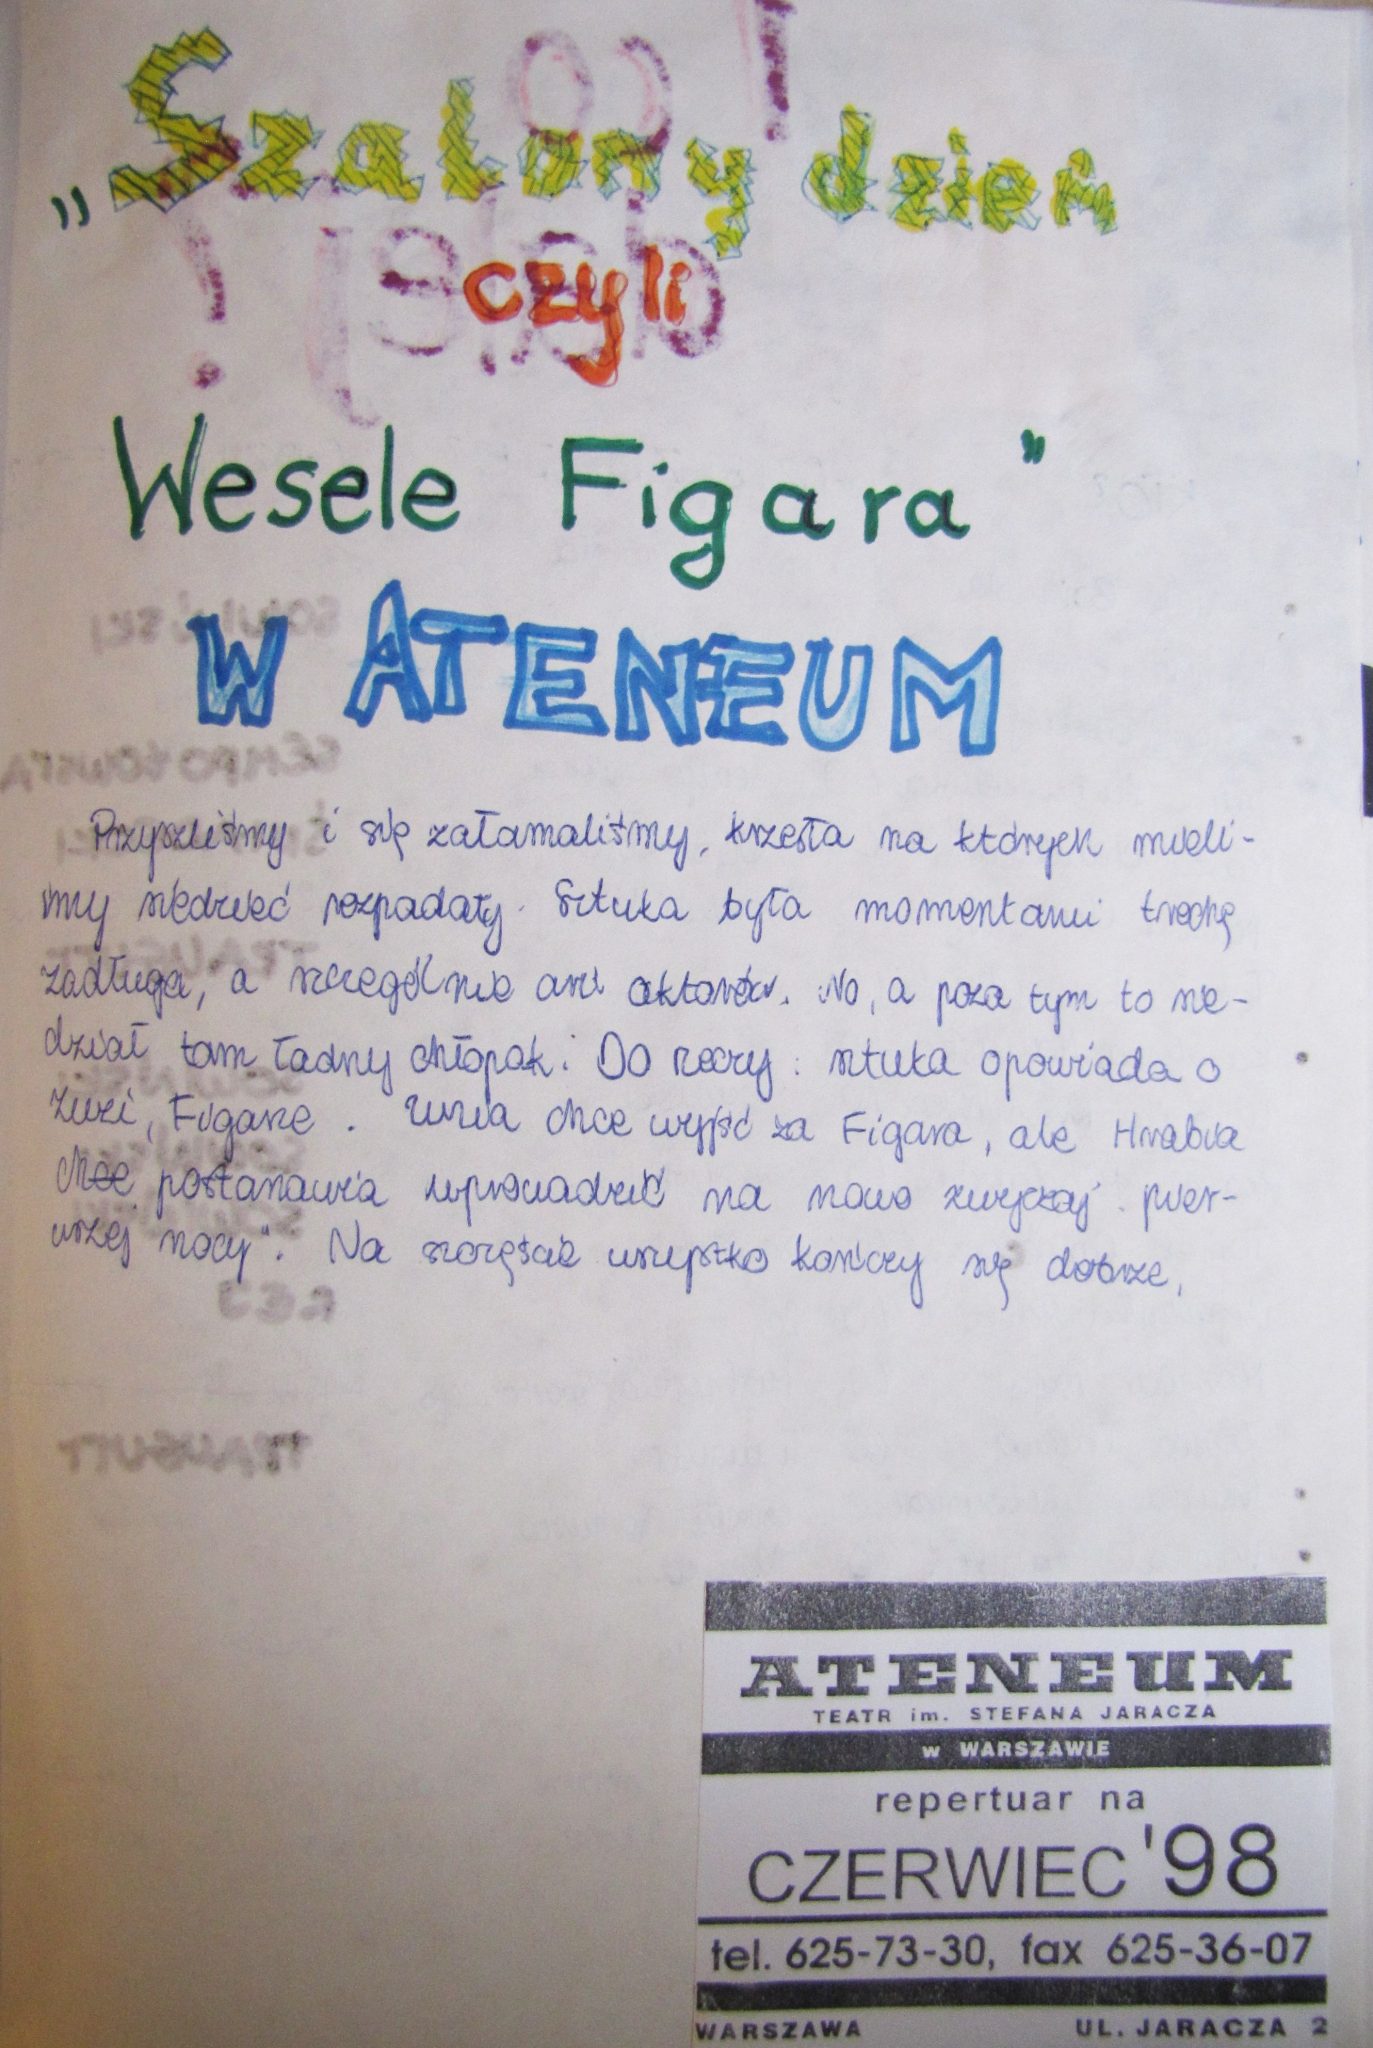 „Szalony dzień
czyli
Wesele Figara”
W ATENEUM
Przyszliśmy i się załamaliśmy, krzesła na których mieli-
śmy siedzieć rozpadały. Sztuka była momentami trochę
zadługa, a szczególnie arii aktorów. No, a poza tym to sie-
dział tam ładny chłopak. Do rzeczy: sztuka opowiada o
Zuzi, Figarze. Zuzia chce wyjść za Figara, ale Hrabia
chce postanawia wprowadzić na nowo zwyczaj „pier-
wszej nocy". Na szczęście wszystko kończy się dobrze.
ATENEUM
TEATR im. STEFANA JARACZA
w WARSZAWIE
repertuar na
CZERWIEC '98
tel. 625-73-30, fax 625-36-07
WARSZAWA UL. JARACZA 2